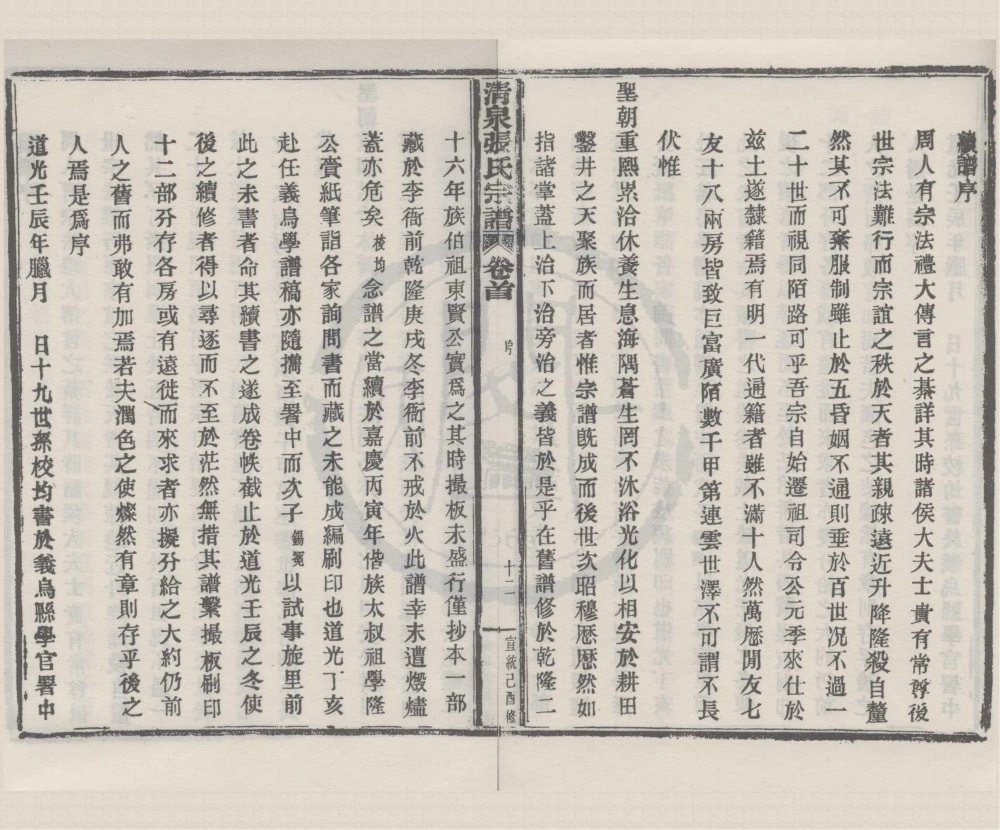 續譜序
周人有宗法禮大傳言之綦詳其時諸侯大夫士貴有常尊後
世宗法難行而宗誼之秩於天者其親疎遠近升降隆殺自釐
然其不可棄服制雖止於五昏姻不通則垂於百世况不過一
二十世而視同陌路可乎吾宗自始遷祖司令公元季來仕於
兹土遂隸籍焉有明一代通籍者雖不滿十人然萬歷閒友七
友十八兩房皆致巨富廣陌數千甲第連雲世澤不可謂不長
伏惟
聖朝重熙累洽休養生息海隅蒼生罔不沐浴光化以相安於耕田
鑿井之天聚族而居者惟宗譜旣成而後世次昭穆歷歷然如
指諸掌蓋上治下治旁治之義皆於是乎在舊譜修於乾隆二
清泉張氏宗譜 卷首 序 十二 宣統己酉修
十六年族伯祖東賢公實爲之其時撮板未盛行僅抄本一部
藏於李衙前乾隆庚戌冬李衙前不戒於火此譜幸未遭燬燼
蓋亦危矣校均念譜之當續於嘉慶丙寅年偕族太叔祖學隆
公賫紙筆詣各家詢問書而藏之未能成編刷印也道光丁亥
赴任義烏學譜稿亦隨攜至署中而次子錫冕以試事旋里前
此之未書者命其續書之遂成卷帙截止於道光壬辰之冬使
後之續修者得以尋逐而不至於茫然無措其譜繫撮板刷印
十二部分存各房或有遠徙而來求者亦擬分給之大約仍前
人之舊而弗敢有加焉若夫潤色之使燦然有章則存乎後之
人焉是爲序
道光壬辰年臘月 日十九世孫校均書於義烏縣學官署中